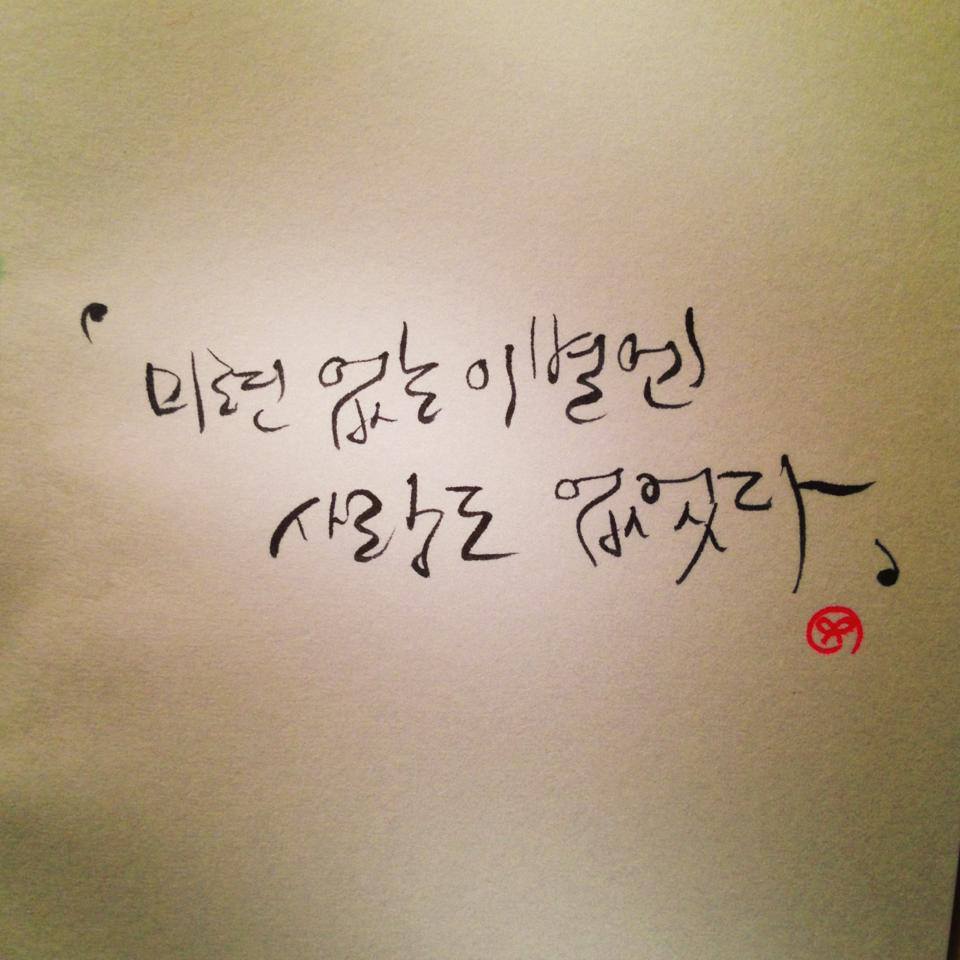 ‘미련 없는 이별엔
사랑도 없었다’